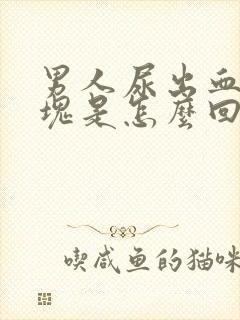 男人尿出血
块是怎麼回
喫咸鱼的猫咪